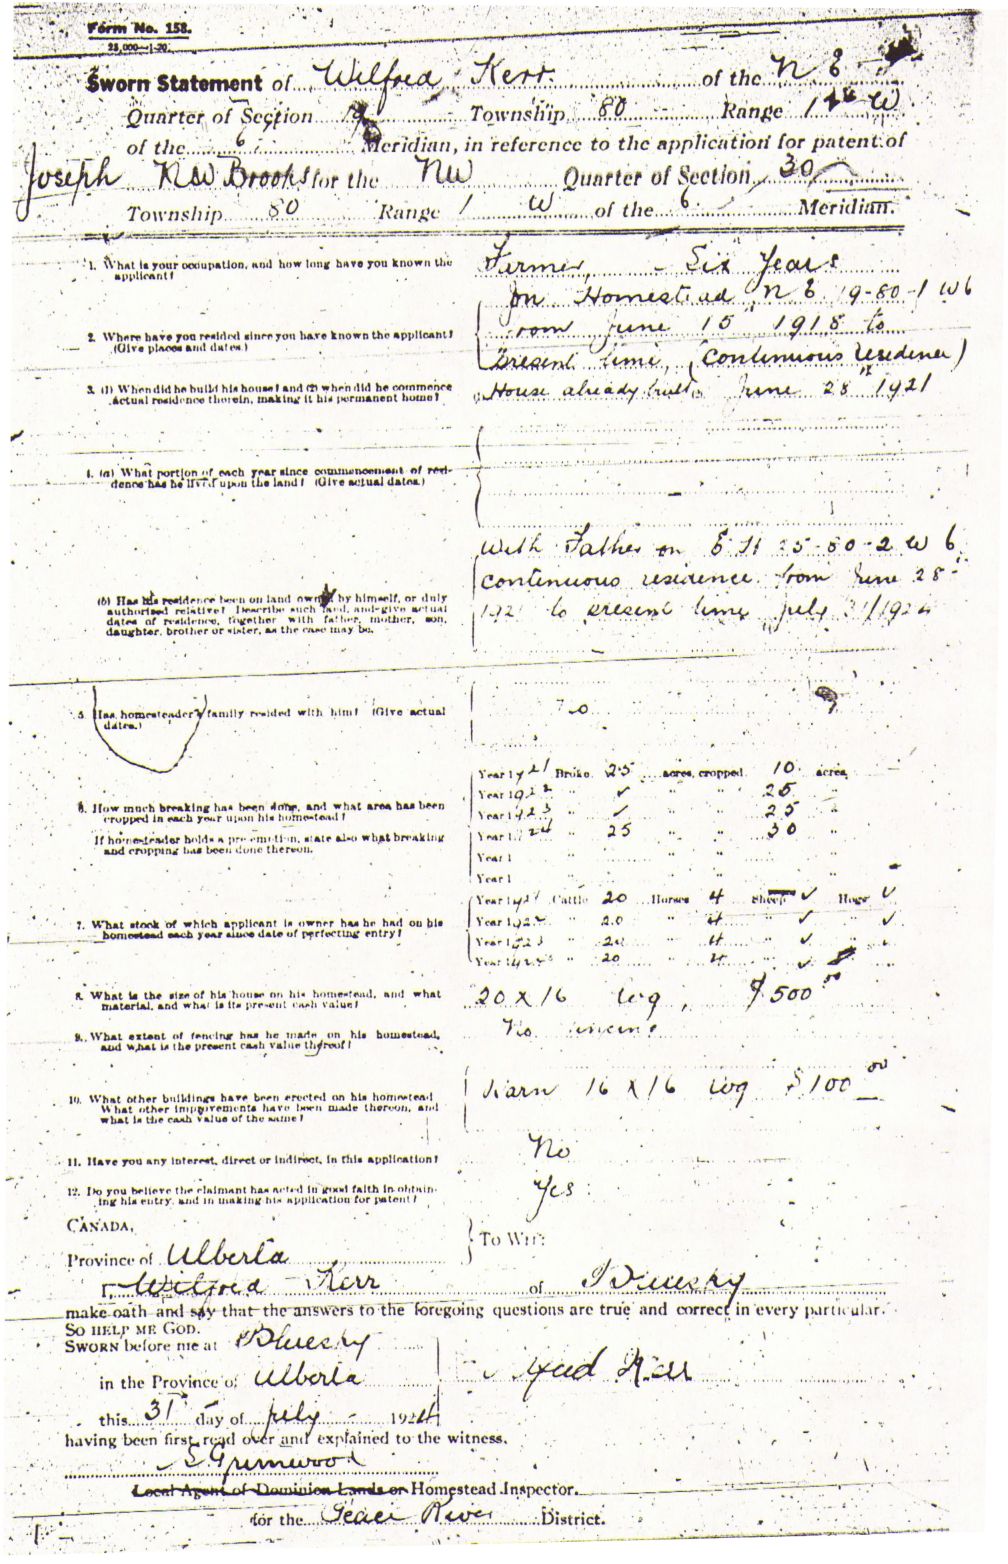 Form No. 158.
25,000—1-20.
Sworn Statement of Wilfred Kerr. of the N E
Quarter of Section 19 Township 80 Range 1 W
of the 6 Meridian, in reference to the application for patent of
Joseph NW Brooks for the NW Quarter of Section 30
Township 80 Range 1 W of the 6 Meridian.
1. What is your occupation, and how long have you known the applicant?
Farmer, - Six Years
2. Where have you resided since you have known the applicant? (Give places and dates.)
on Homestead N E 19-80-1 W 6
from June 15th 1918 to
present time, (continuous residence)
3. (1) When did he build his house? and (2) when did he commence actual residence therein, making it his permanent home?
House already built, June 28th 1921
4. (a) What portion of each year since commencement of residence has he lived upon the land? (Give actual dates.)
(b) Has his residence been on land owned by himself, or duly authorized relative? Describe such land, and give actual dates of residence, together with father, mother, son, daughter, brother or sister, as the case may be.
With Father on E H 25-80-2 W 6
continuous residence from June 28th
1921 to present time July 31/1924
5. Has homesteader's family resided with him? (Give actual dates.)
No
6. How much breaking has been done, and what area has been cropped in each year upon his homestead?
If homesteader holds a pre-emption, state also what breaking and cropping has been done thereon.
Year 1921 Broke 25 acres, cropped 10 acres
Year 1922 " ✓ " " 25 "
Year 1923 " ✓ " " 25 "
Year 1924 " 25 " " 30 "
Year 1 " " " "
Year 1 " " " "
7. What stock of which applicant is owner has he had on his homestead each year since date of perfecting entry?
Year 1921 Cattle 20 Horses 4 Sheep ✓ Hogs ✓
Year 1922 " 20 " 4 " ✓ " ✓
Year 1923 " 20 " 4 " ✓ " ✓
Year 1924 " 20 " 4 " ✓ "
8. What is the size of his house on his homestead, and what material, and what is its present cash value?
20 X 16 Log, $500 00
9. What extent of fencing has he made on his homestead, and what is the present cash value thereof?
No fencing
10. What other buildings have been erected on his homestead What other improvements have been made thereon, and what is the cash value of the same?
Barn 16 X 16 Log $100 00
11. Have you any interest, direct or indirect, in this application?
No
12. Do you believe the claimant has acted in good faith in obtaining his entry, and in making his application for patent?
Yes
CANADA,
Province of Alberta } To Wit:
I, Wilfred Kerr of Bluesky
make oath and say that the answers to the foregoing questions are true and correct in every particular.
SO HELP ME GOD.
SWORN before me at Bluesky
in the Province of Alberta
this 31st day of July 1924
having been first read over and explained to the witness.
Grimwood
Local Agent of Dominion Lands or Homestead Inspector.
for the Peace River District.